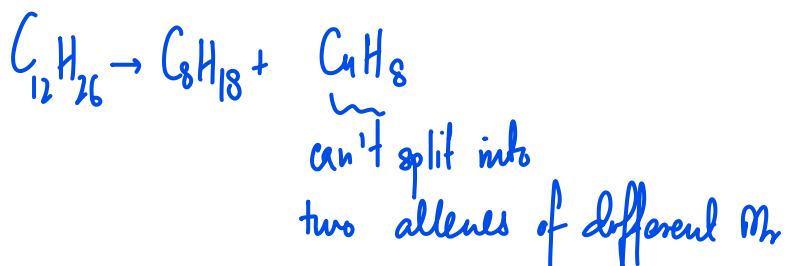 C₁₂H₂₆ → C₈H₁₈ + C₄H₈
can't split into
two alkenes of different Mr